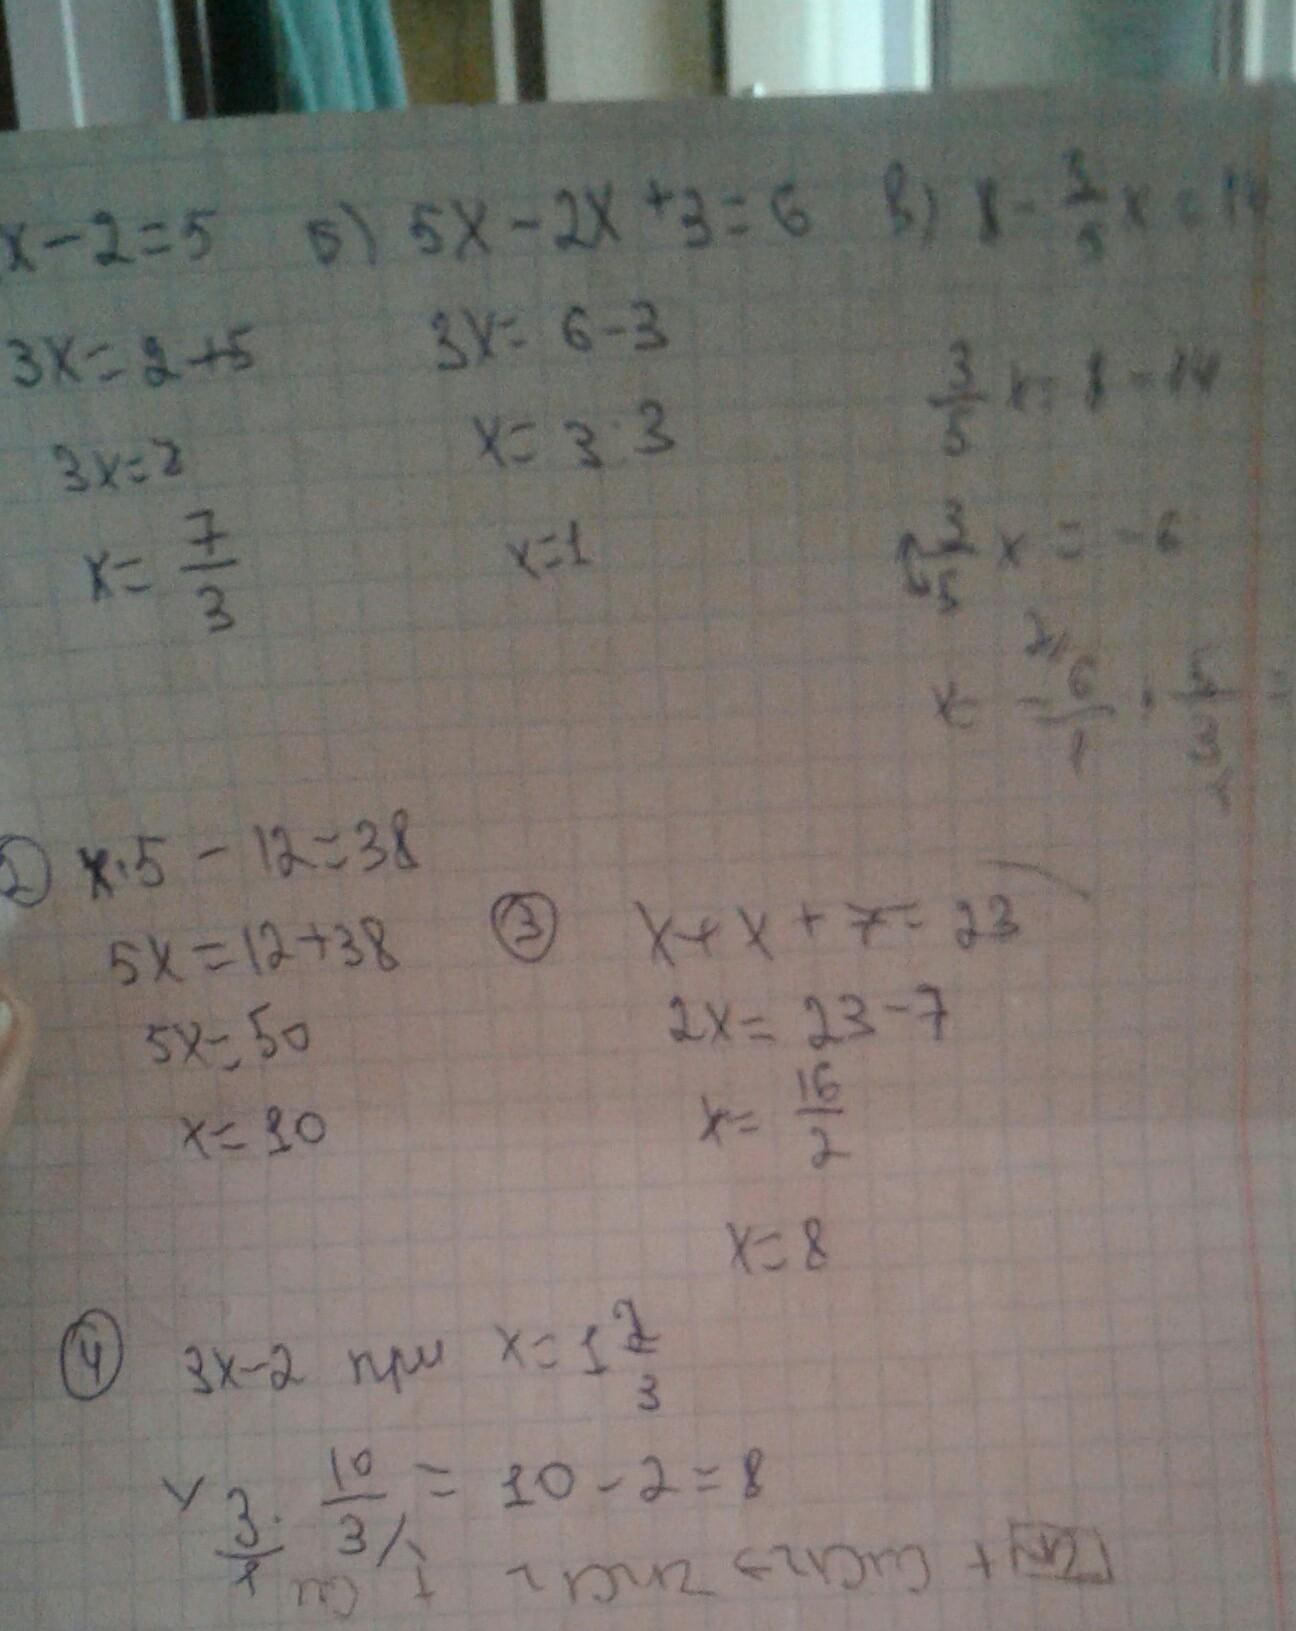 x-2=5 б) 5x-2x+3=6 в) 8-3/5x=14
3x=2+5 3x=6-3 3/5x=8-14
3x=7 x=3:3 3/5x=-6
x=7/3 x=1 x=-6/1·5/3=
② x·5-12=38
5x=12+38 ③ x+x+7=23
5x=50 2x=23-7
x=10 x=16/2
x=8
④ 3x-2 при x=1 7/3
3/1·10/3=10-2=8